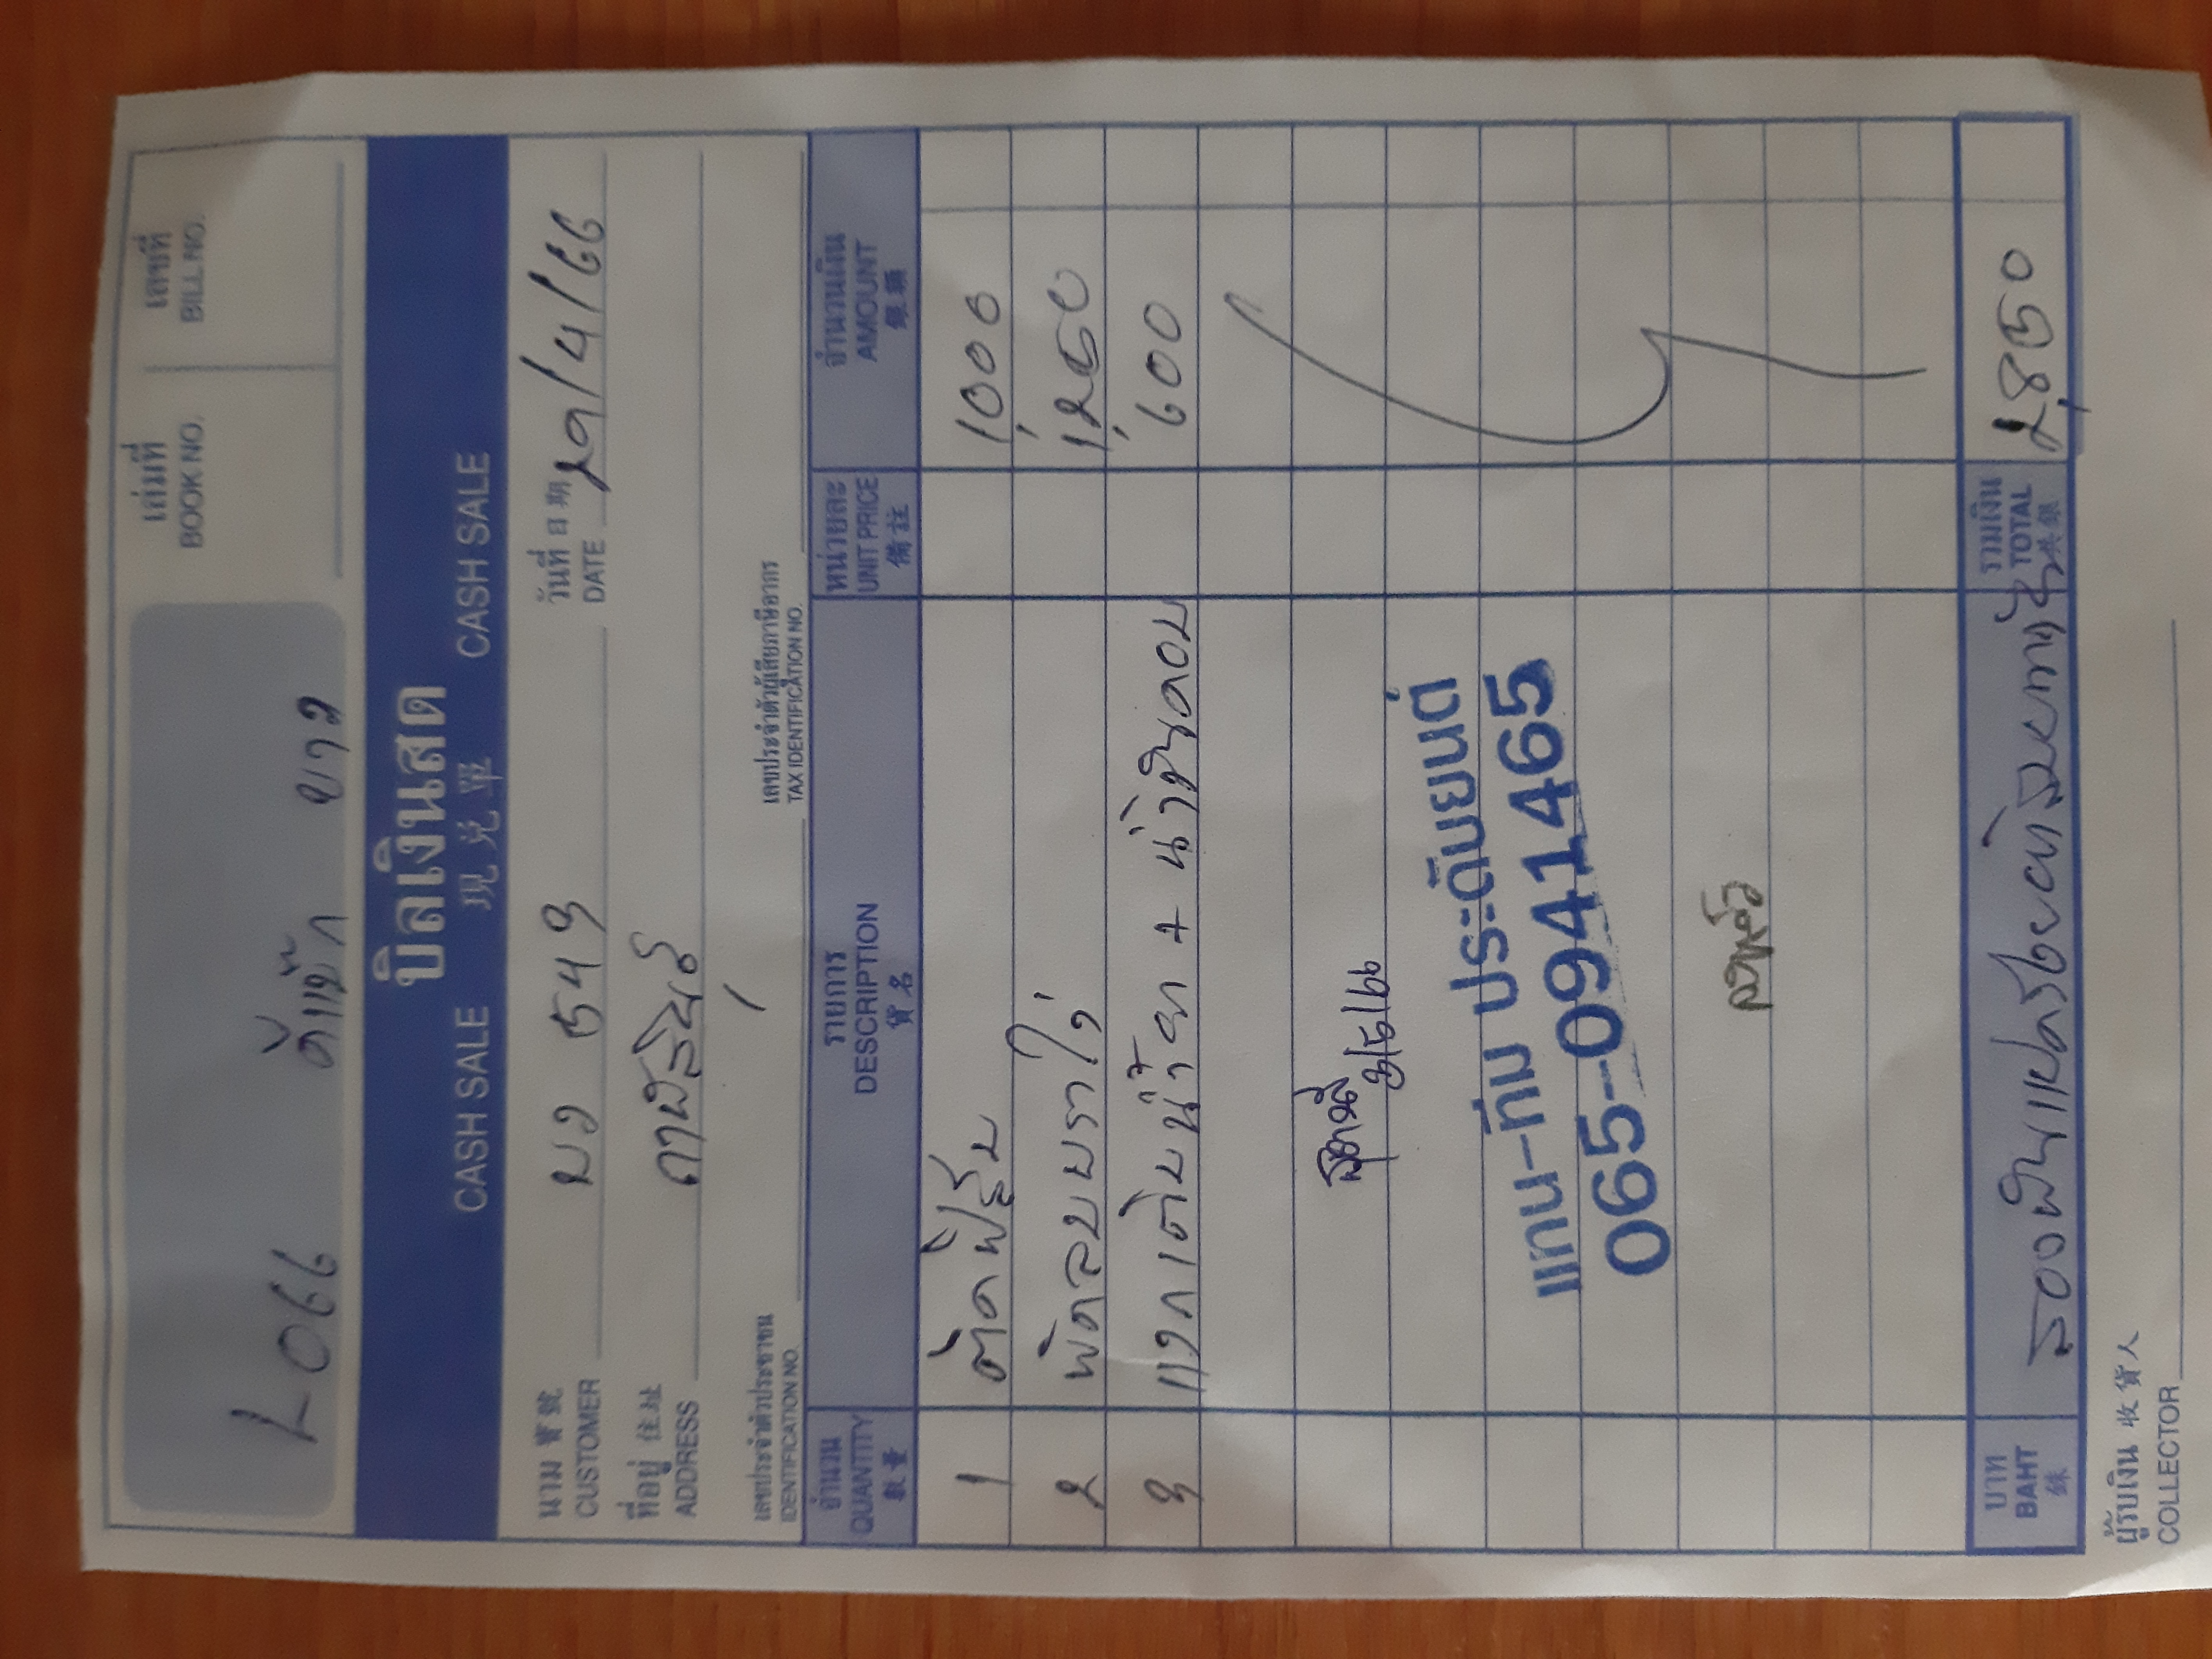 เล่มที่ เลขที่
BOOK NO. BILL NO.
L-066 ดีแม็ก ขาว
บิลเงินสด
CASH SALE 現兌單 CASH SALE
นาม 寶號 บว 549 วันที่ 日期
CUSTOMER DATE 29/4/66
ที่อยู่ 住址 กาฬสินธุ์
ADDRESS
เลขประจำตัวประชาชน เลขประจำตัวผู้เสียภาษีอากร
IDENTIFICATION NO. TAX IDENTIFICATION NO.
จำนวน รายการ หน่วยละ จำนวนเงิน
QUANTITY DESCRIPTION UNIT PRICE AMOUNT
數量 貨名 備註 銀額
1 ตัดฟิล์ม 1,000
2 พัดลมบราเว่ 1,250
3 แวกเติมน้ำยา + น้ำมันคอม 600
แทน-ทิม ประดับยนต์
065-0941465
บาท รวมเงิน
BAHT สองพันแปดร้อยห้าสิบบาทถ้วน TOTAL 2,850
銖 共銀
ผู้รับเงิน 收貨人
COLLECTOR